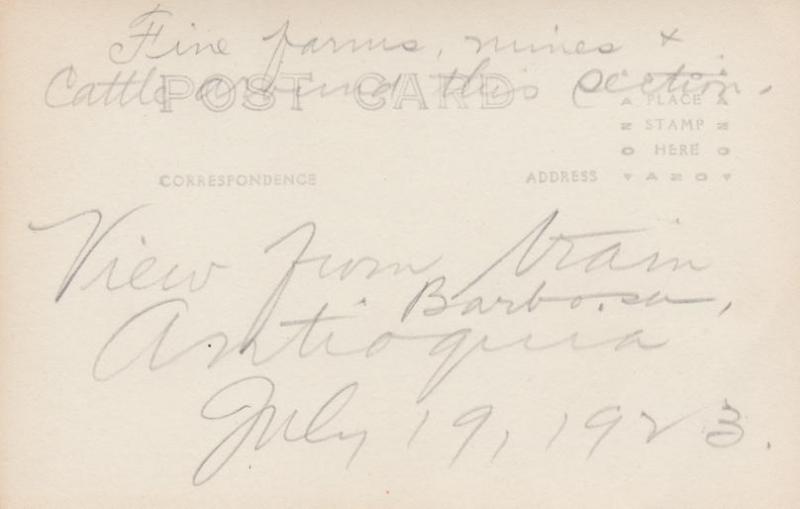 Fine farms, mines +
Cattle around this section.
POST CARD
PLACE
STAMP
HERE
CORRESPONDENCE
ADDRESS
AZO
View from train
Barbosa,
Antioquia
July 19, 1923.